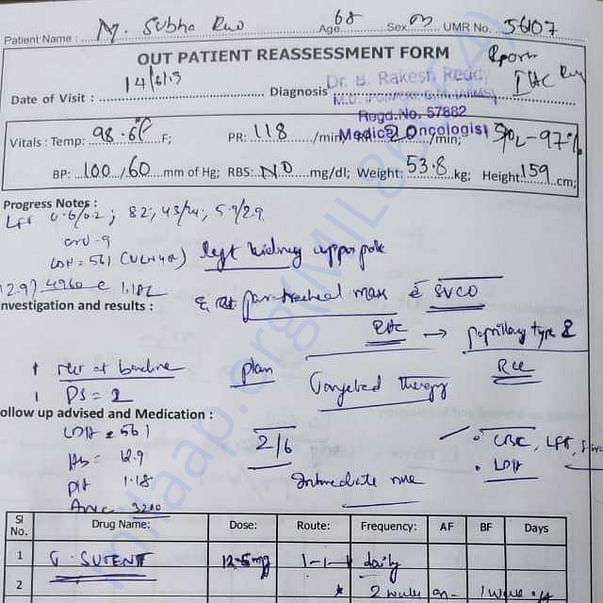 Patient Name : M. Subha Rao Age 68 Sex m UMR No. 56107
OUT PATIENT REASSESSMENT FORM
Date of Visit : Diagnosis
Dr. B. Rakesh Reddy
Regd.No. 57882
Medical Oncologist
Vitals : Temp: 98.6 F; PR: 118 /min; /min; SpO2-97%
BP: 100/60 mm of Hg; RBS: ND mg/dl; Weight: 53.8 kg; Height: 159 cm;
Progress Notes :
LFT 0.6/0.2; 82, 43/ 5.9/2.9
LDH = 561 left kidney upper pole
12.9 4960 1.18L
nvestigation and results :
paratracheal mass SVCO
→ papillary type 2
RCC
plan
PS = 2 Targeted therapy
ollow up advised and Medication :
LDH = 561 2/6 CBC, LFT,
Hb = 12.9 LDH
plt 1.18 Intermediate
ANC 3200
Sl No. Drug Name: Dose: Route: Frequency: AF BF Days
1 SUTENT 12.5mg 1-1-1 daily
2 2 weeks on- 1 week off
milaap.org(MILB6